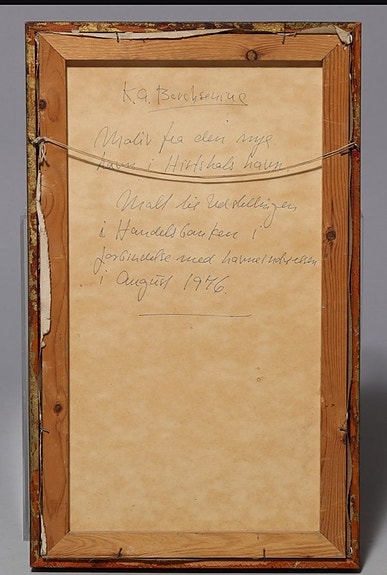 K.A. Borchsenius
Motiv fra den nye
havn i Hirtshals havn.
Malt til Udstillingen
i Handelsbanken i
forbindelse med havneindvielsen
i August 1976.